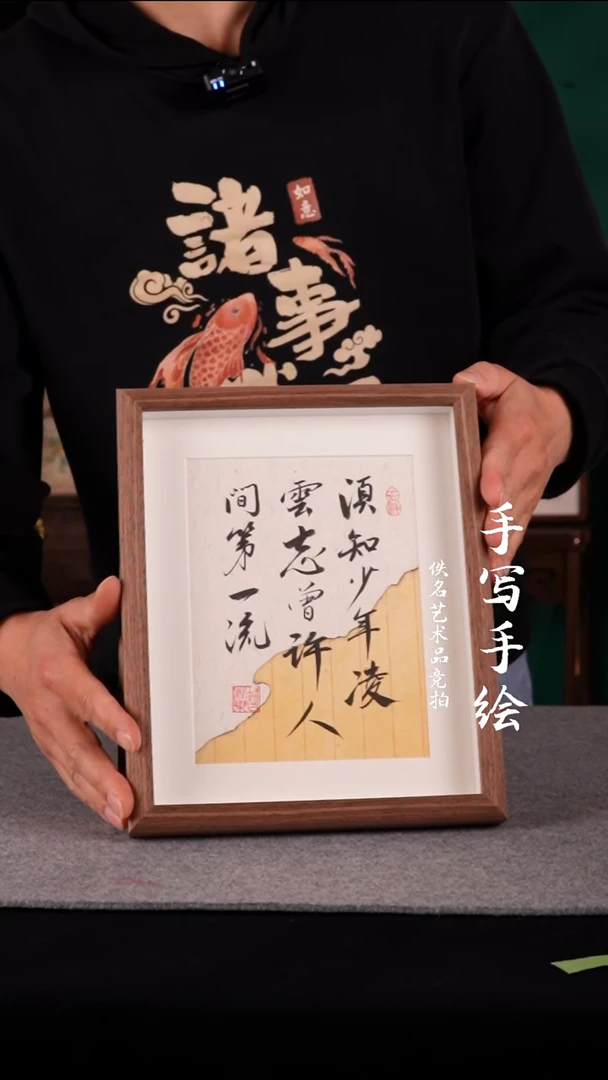 諸事
如意
須知少年凌
雲志曾许人
間第一流
手写手绘
佚名艺术品竞拍